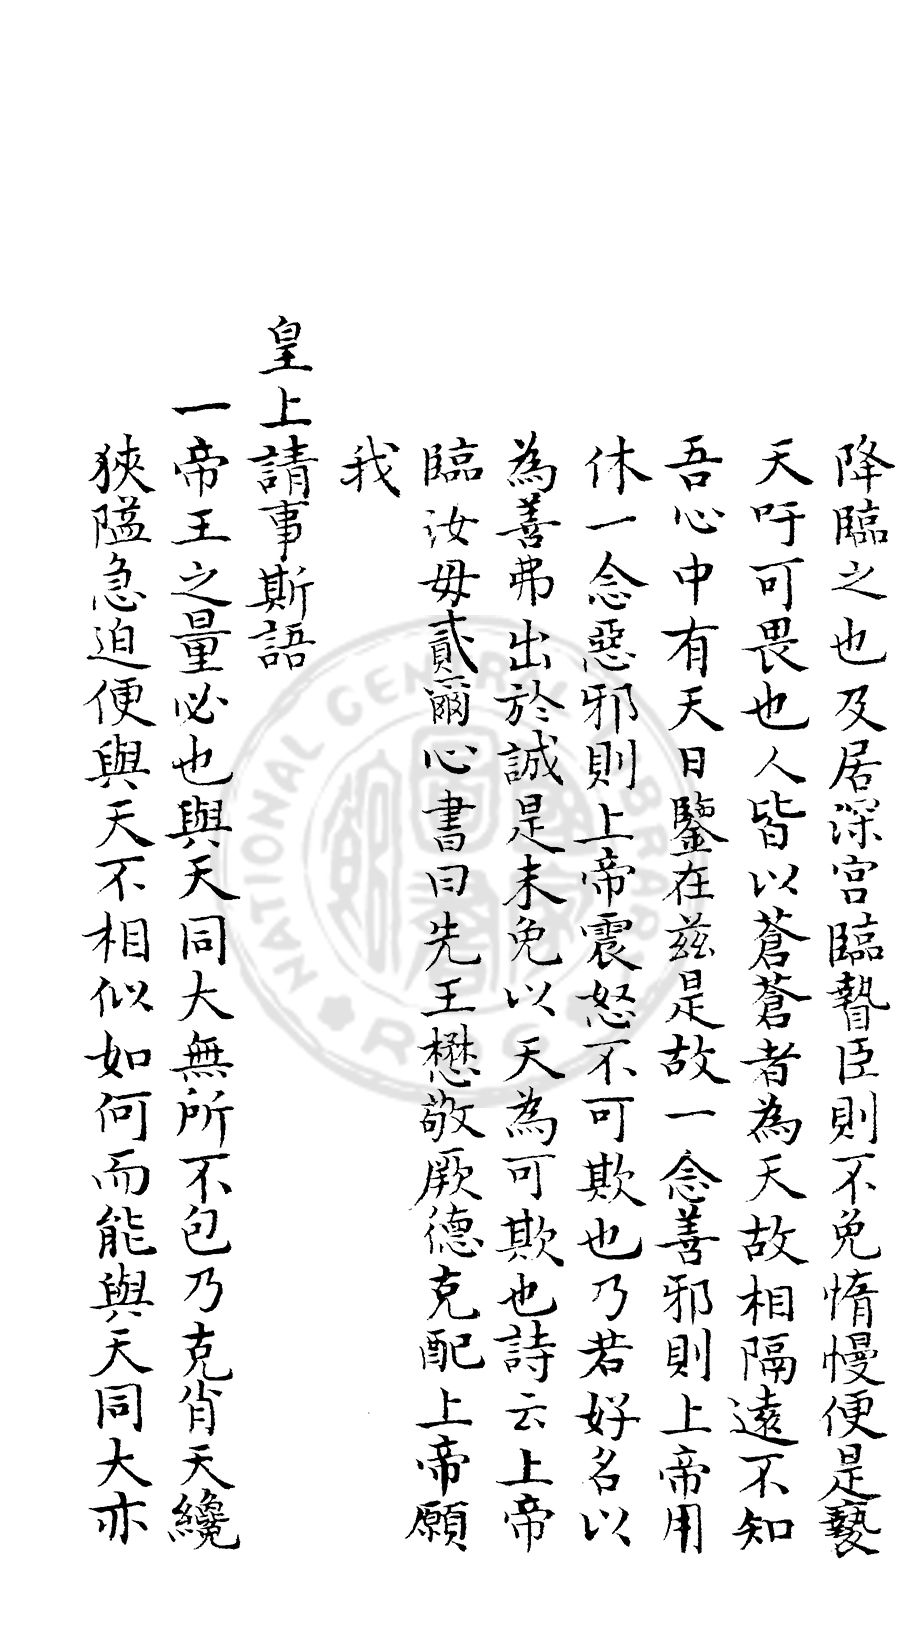 降臨之也及居深宮臨暬臣則不免惰慢便是褻
天吁可畏也人皆以蒼蒼者為天故相隔遠不知
吾心中有天日鑒在茲是故一念善邪則上帝用
休一念惡邪則上帝震怒不可欺也乃若好名以
為善弗出於誠是未免以天為可欺也詩云上帝
臨汝毋貳爾心書曰先王懋敬厥德克配上帝願
我
皇上請事斯語
一帝王之量必也與天同大無所不包乃克肖天纔
狹隘急迫便與天不相似如何而能與天同大亦
NATIONAL CENTRAL LIBRARY
R.O.C